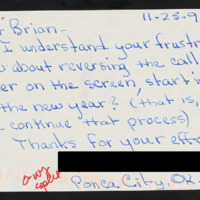 r Brian-
11-25-9
I understand your frustr
about reversing the call
er on the screen, start i
the new year? (that is,
continue that process)
Thanks for your effor
Ponca City, OK